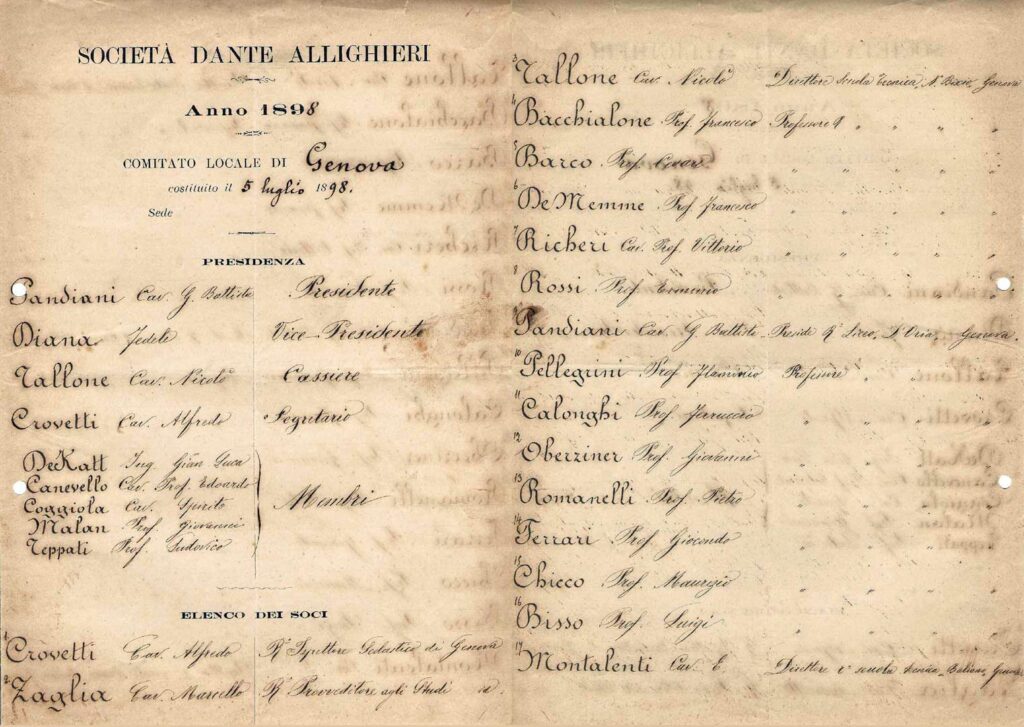 SOCIETÀ DANTE ALLIGHIERI
Anno 1898
COMITATO LOCALE DI Genova
costituito il 5 luglio 1898.
Sede
PRESIDENZA
Pandiani Cav. G. Battista Presidente
Diana Fedele Vice-Presidente
Tallone Cav. Nicolò Cassiere
Crovetti Cav. Alfredo Segretario
DeKatt Ing. Gian Luca
Canevello Cav. Prof. Edoardo
Coggiola Cav. Spirito Membri
Malan Prof. Giovanni
Teppati Prof. Ludovico
ELENCO DEI SOCI
1 Crovetti Cav. Alfredo R.º Ispettore Scolastico di Genova
2 Zaglia Cav. Marcello R.º Provveditore agli Studi id.
3 Tallone Cav. Nicolò Direttore Scuola Tecnica, N. Bixio, Genova
4 Bacchialone Prof. Francesco Professore " " " "
5 Barco Prof. " " " "
6 DeMemme Prof. Francesco " " " "
7 Richeri Cav. Prof. Vittorio " " " "
8 Rossi Prof. " " " "
9 Pandiani Cav. G. Battista Preside R.º Liceo, D'Oria, Genova.
10 Pellegrini Prof. Flaminio Professore " " "
11 Calonghi Prof. Ferruccio " " " "
12 Oberziner Prof. Giovanni " " " "
13 Romanelli Prof. Pietro " " " "
14 Ferrari Prof. Giocondo " " " "
15 Chicco Prof. Maurizio " " " "
16 Bisso Prof. Luigi " " " "
17 Montalenti Cav. E. Direttore scuola tecnica, Genova